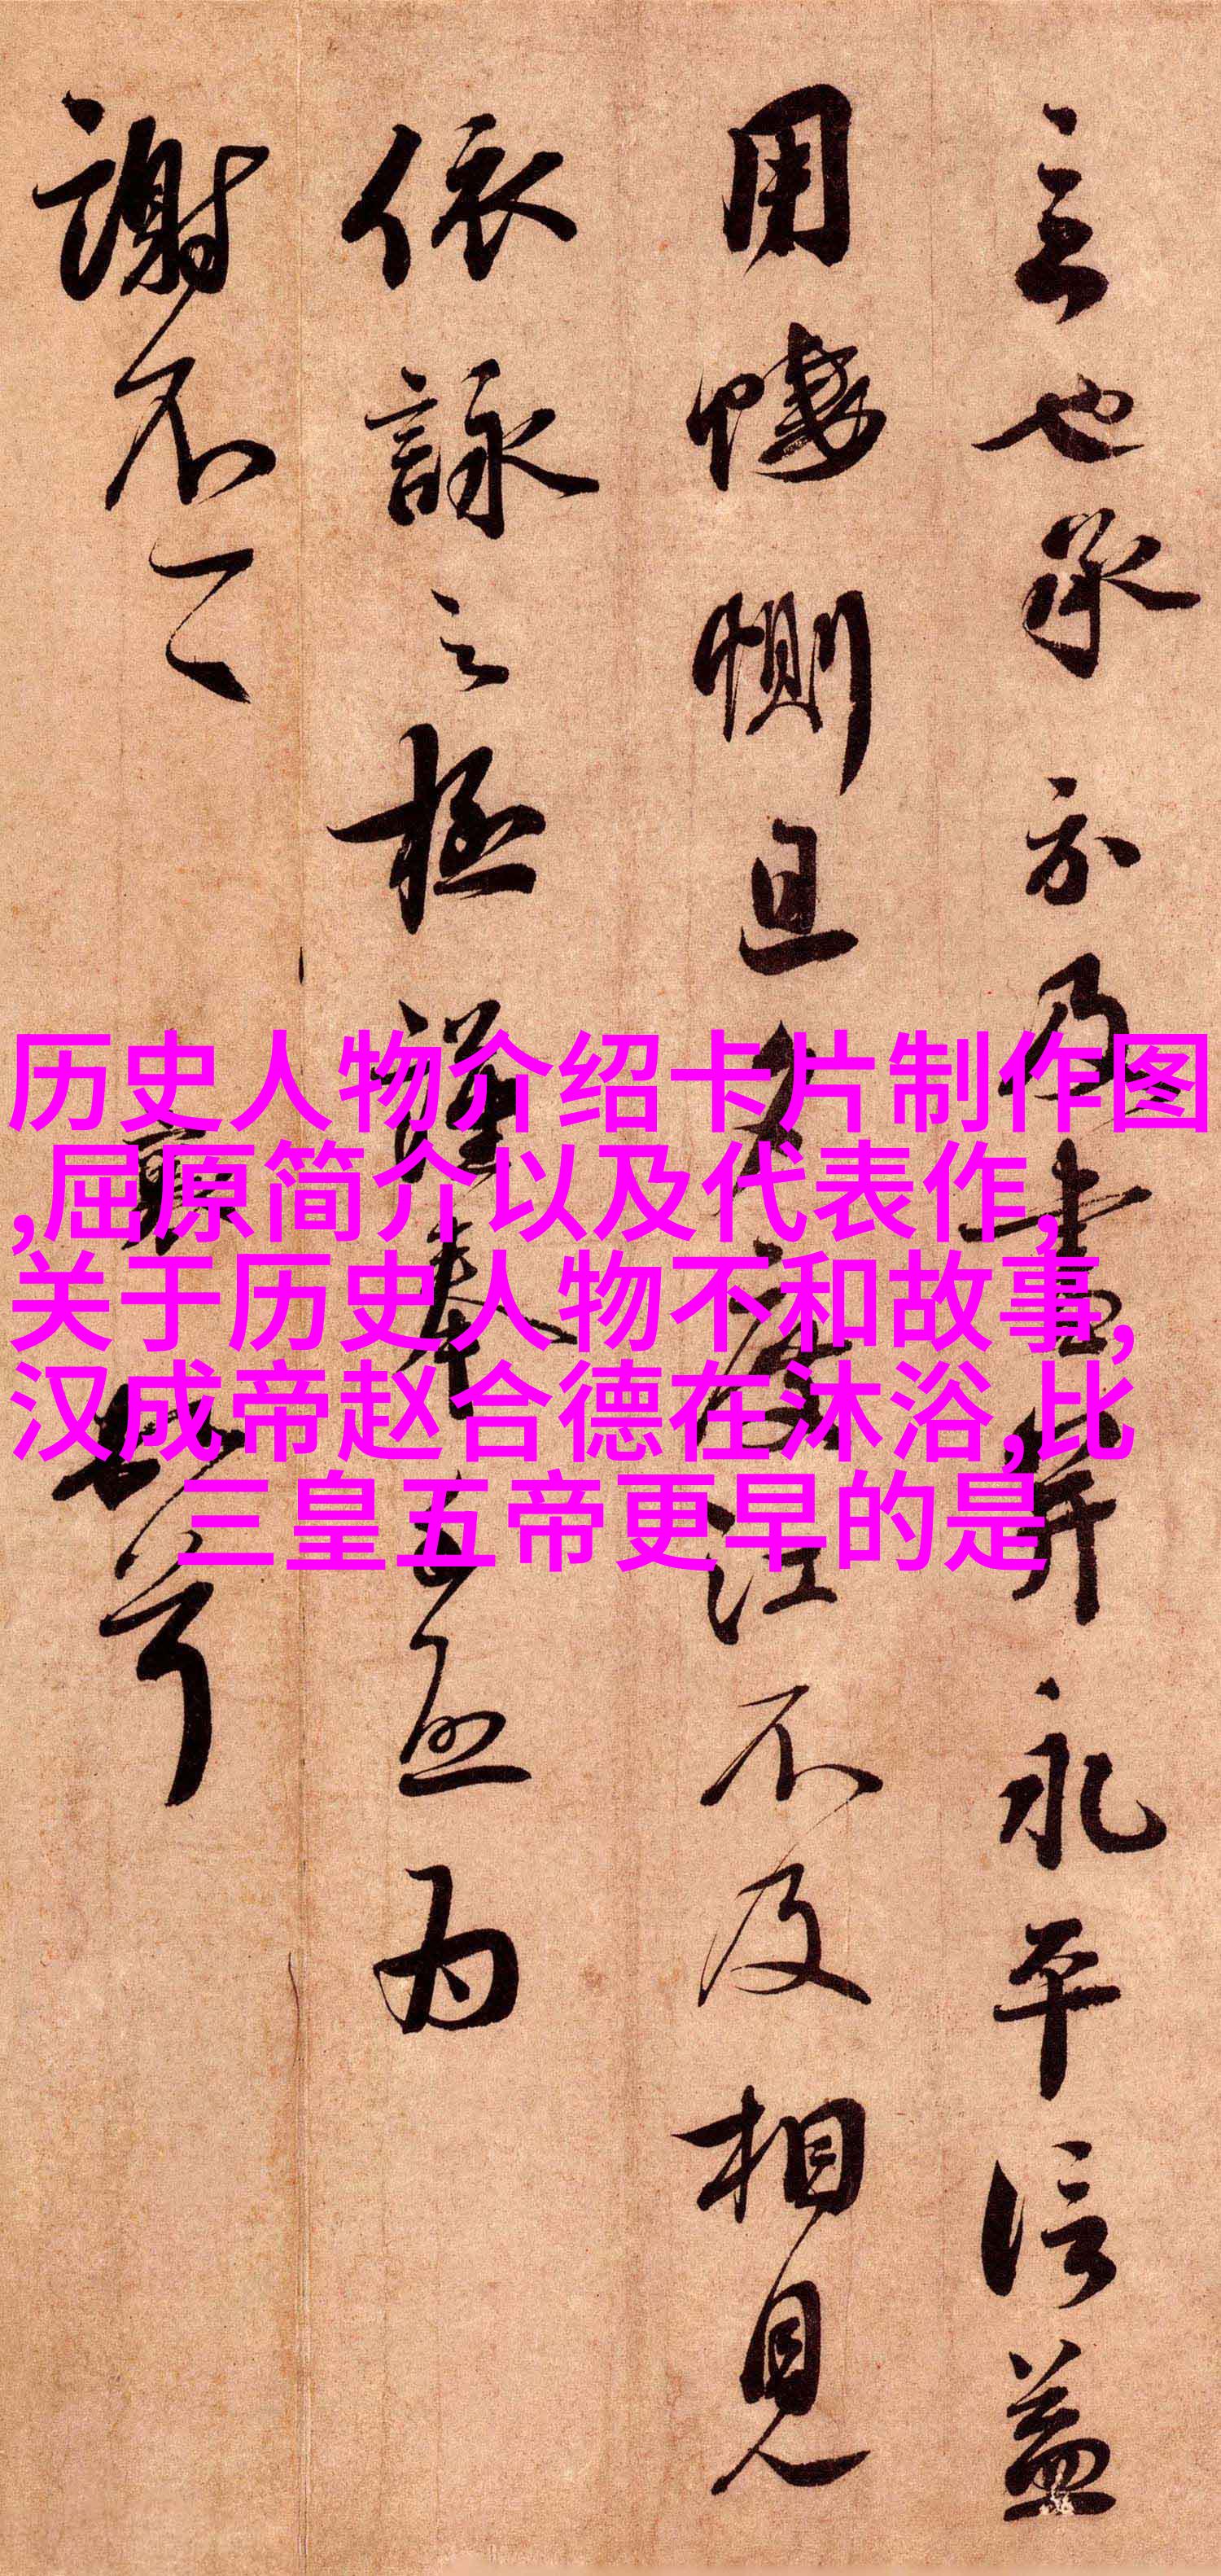 立也承示及書并永平信益
用悽惻且
江不及相見
依詠之極謹奉
為
謝不一
襄
历史人物介绍卡片制作图
,屈原简介以及代表作,
关于历史人物不和故事,
汉成帝赵合德在沐浴,比
三皇五帝更早的是